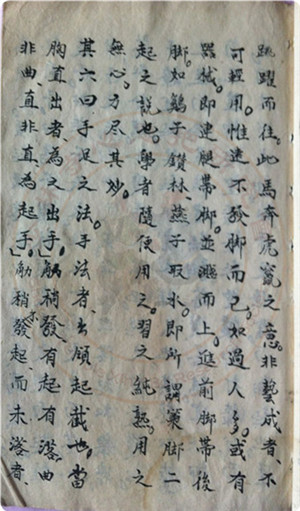 跳躍而往。此馬奔虎竄之意。非藝成者、不
可輕用。惟遠不發脚而已。如遇人多。或有
器械。即連腿帶脚。並踴而上。進前脚帶後
脚。如鷂子鑽林、燕子取水。即所謂裹脚二
起之說也。學者隨便用之。習之純熟。用之
無心。方尽其妙。
其六曰手足之法。手法者、出領起截也。當
胸直出者為之出手。觔稍發、有起有落。曲
非曲、直非直、為起手。觔稍不發起、而未落者、